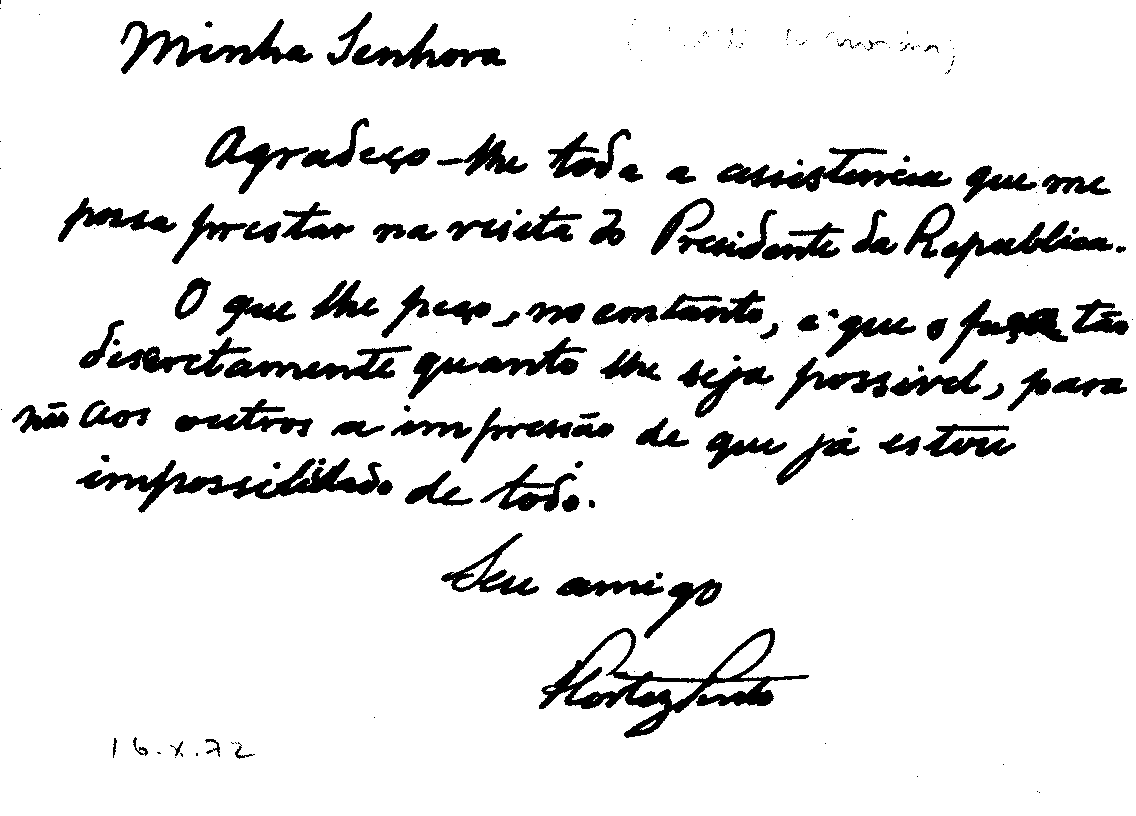 Minha Senhora
Agradeço-lhe toda a assistencia que me
possa prestar na visita do Presidente da Republica.
O que lhe peço, no entanto, é que o faça tão
discretamente quanto lhe seja possivel, para
não aos outros a impressão de que já estou
impossibilitado de todo.
Seu amigo
16.X.72